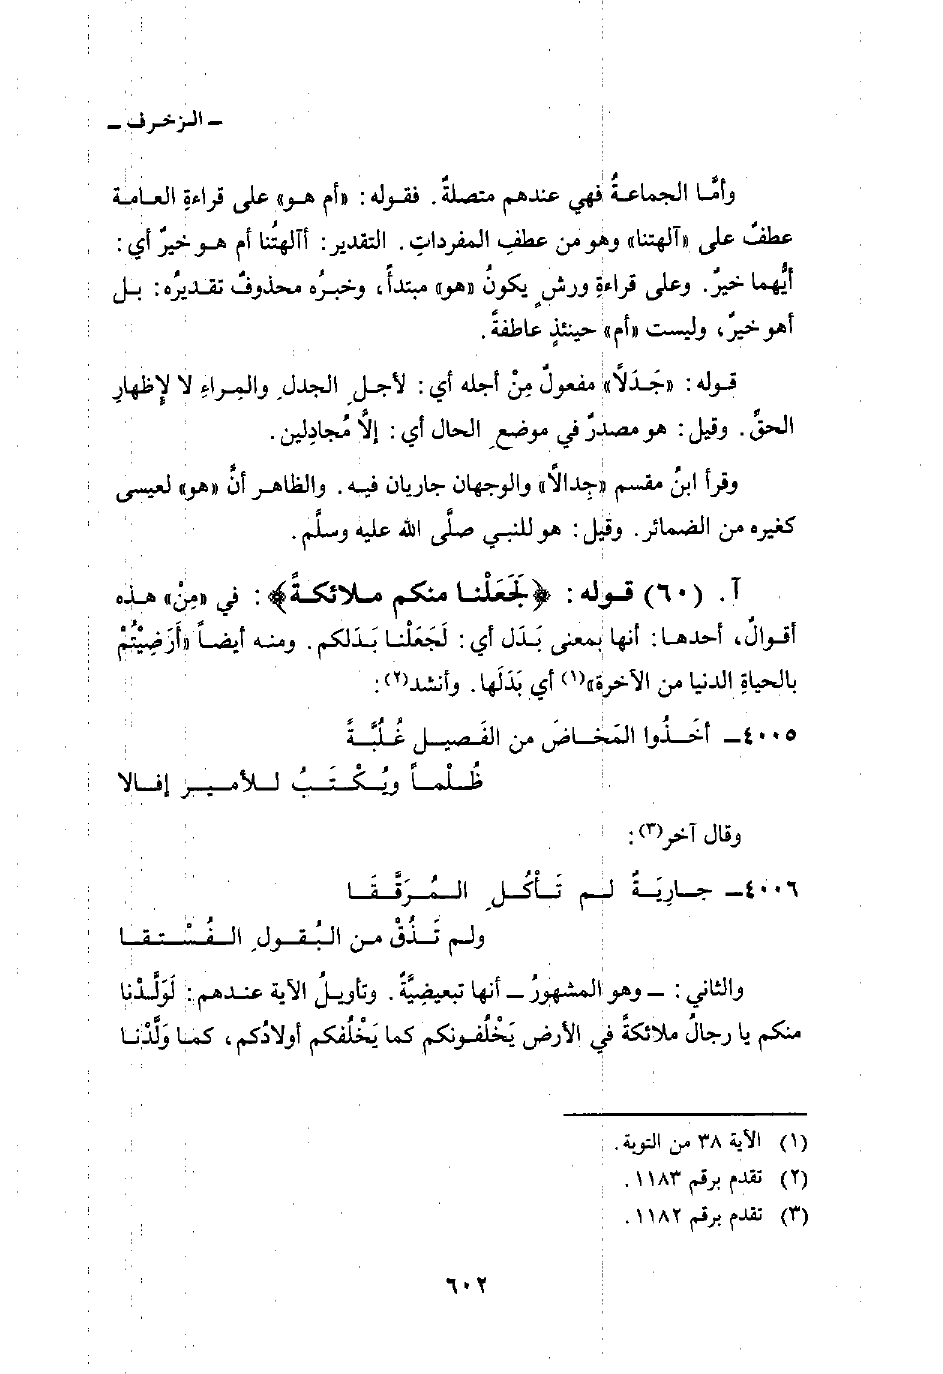 ـ الزخرف ـ
وأمَّا الجماعةُ فهي عندهم متصلةٌ. فقوله: «أم هو» على قراءةِ العامة
عطفٌ على «آلهتنا» وهو من عطفِ المفرداتِ. التقدير: أآلهتُنا أم هو خيرٌ أي:
أيُّهما خيرٌ. وعلى قراءةِ ورشٍ يكونُ «هو» مبتدأً، وخبرُه محذوفٌ تقديرُه: بل
أهو خيرٌ، وليست «أم» حينئذٍ عاطفةً.
قوله: «جَدَلاً» مفعولٌ مِنْ أجله أي: لأجلِ الجدلِ والمِراءِ لا لإِظهارِ
الحقِّ. وقيل: هو مصدرٌ في موضعِ الحال أي: إلاَّ مُجادِلين.
وقرأ ابنُ مقسم «جِدالاً» والوجهان جاريان فيه. والظاهر أنَّ «هو» لعيسى
كغيره من الضمائر. وقيل: هو للنبي صلَّى الله عليه وسلَّم.
آ. (٦٠) قوله: ﴿لَجَعَلْنا منكم ملائكةً﴾: في «مِنْ» هذه
أقوالٌ، أحدها: أنها بمعنى بَدَل أي: لَجَعَلْنا بَدَلكم. ومنه أيضاً «أَرَضِيْتُمْ
بالحياةِ الدنيا من الآخرة»(١) أي بَدَلَها. وأنشد(٢):
٤٠٠٥ـ أخَذُوا المَخاضَ من الفَصيلِ غُلُبَّةً
ظُلْماً ويُكْتَبُ للأميرِ إفالا
وقال آخر(٣):
٤٠٠٦ـ جارِيَةٌ لم تَأْكُلِ المُرَقَّقَا
ولم تَذُقْ من البُقولِ الفُسْتقا
والثاني: ـ وهو المشهورُ ـ أنها تبعيضيَّةٌ. وتأويلُ الآية عندهم: لَوَلَّدْنا
منكم يا رجالُ ملائكةً في الأرض يَخْلُفونكم كما يَخْلُفكم أولادُكم، كما وَلَّدْنا
(١) الآية ٣٨ من التوبة.
(٢) تقدم برقم ١١٨٣.
(٣) تقدم برقم ١١٨٢.
٦٠٢